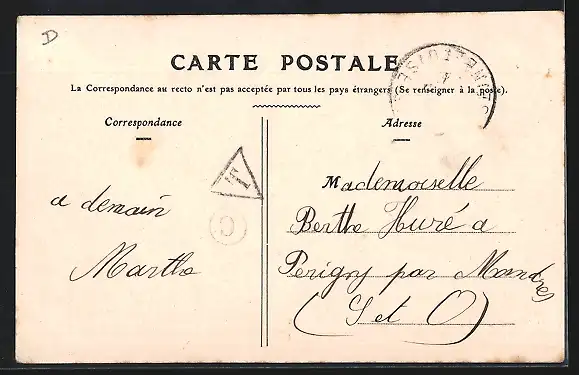 D
CARTE POSTALE
La Correspondance au recto n'est pas acceptée par tous les pays étrangers (Se renseigner à la poste).
Correspondance
a demain
Marthe
T
C
Adresse
Mademoiselle
Berthe Huré a
Perigny par Mandres
(S et O)